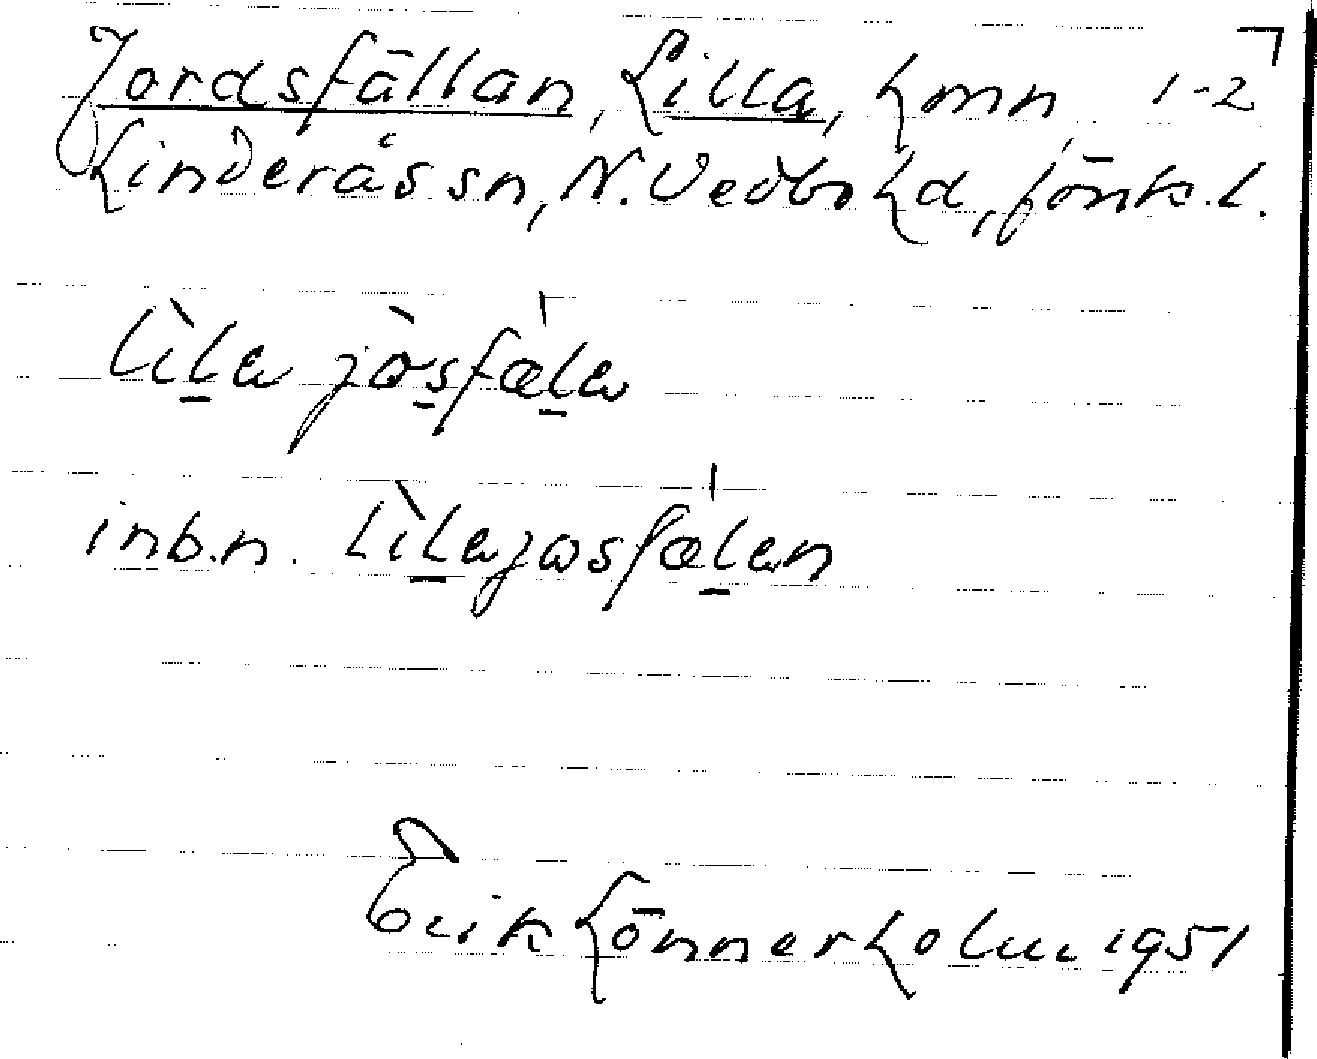 Jordsfällan, Lilla, hmn, 1-2
Linderås sn, N. Vedbo hd, Jönk. l.
lìla jòsfæ̍la
inb.n. lìlajosfæ̍lan
Erik Lönnerholm 1951